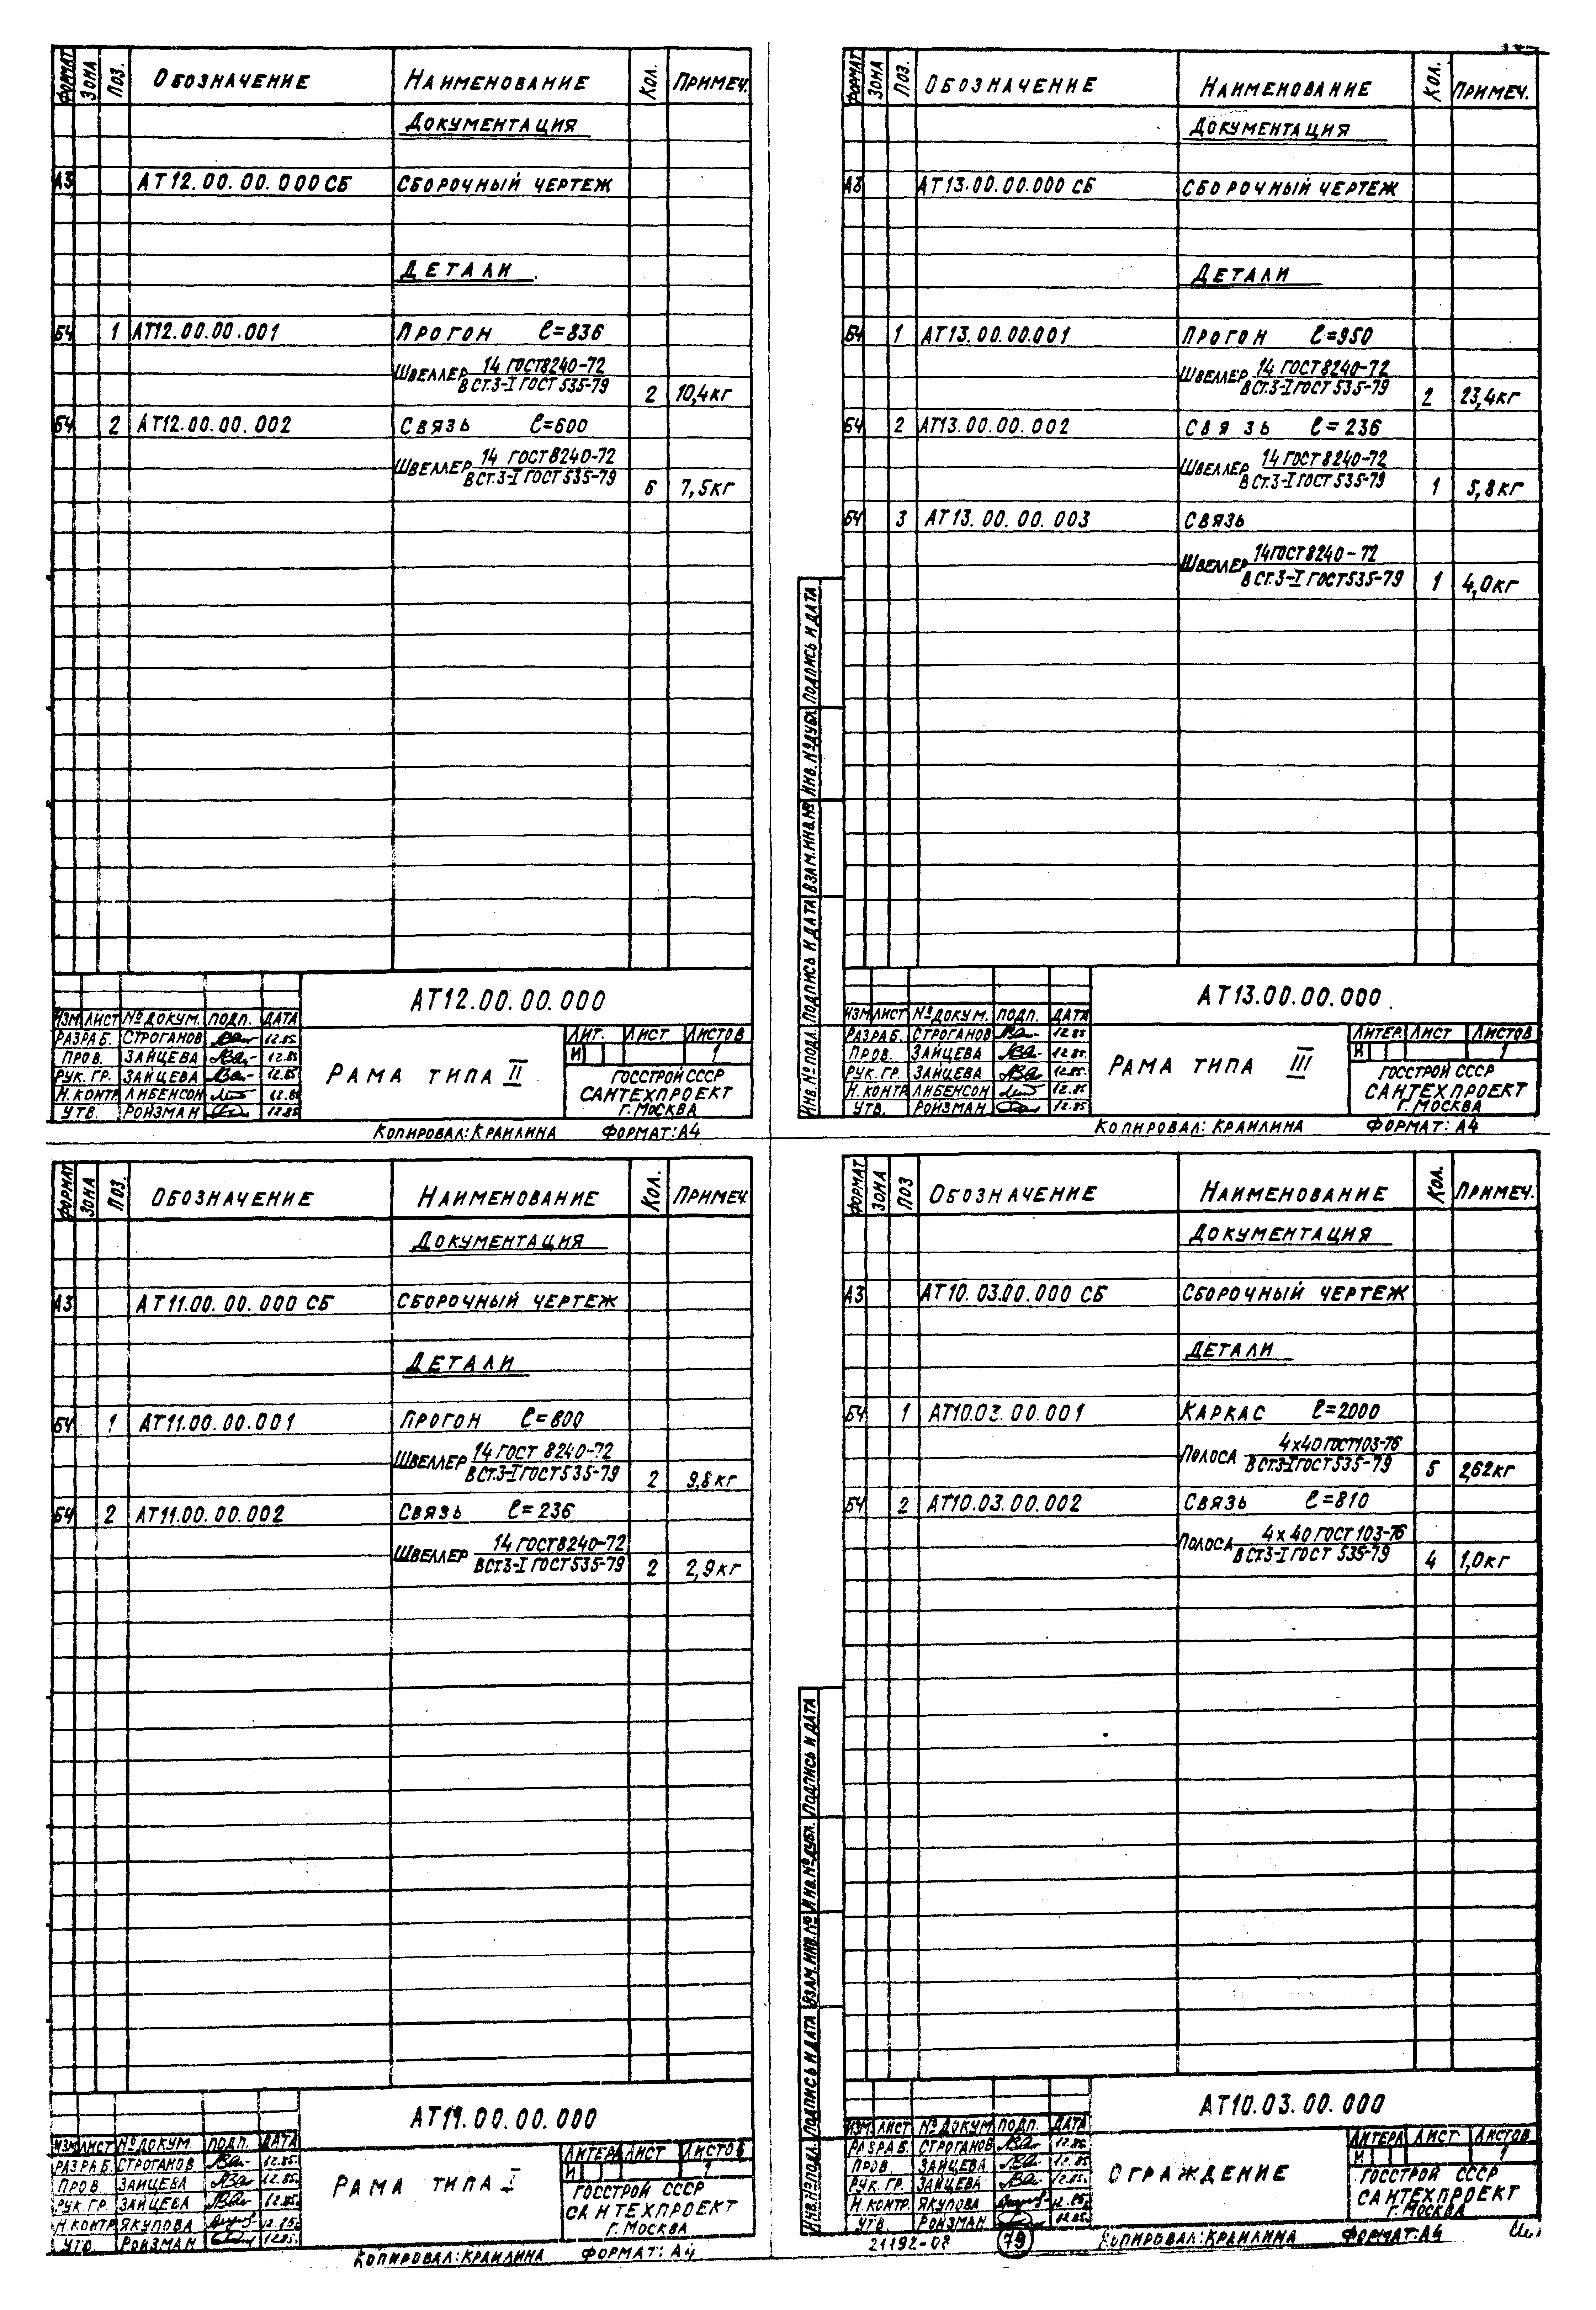 ФОРМАТ ЗОНА ПОЗ. ОБОЗНАЧЕНИЕ НАИМЕНОВАНИЕ КОЛ. ПРИМЕЧ.
ДОКУМЕНТАЦИЯ
А3 АТ12.00.00.000 СБ СБОРОЧНЫЙ ЧЕРТЕЖ
ДЕТАЛИ
БЧ 1 АТ12.00.00.001 ПРОГОН ℓ=836
ШВЕЛЛЕР 14 ГОСТ 8240-72
В СТ.3-I ГОСТ 535-79 2 10,4 кг
БЧ 2 АТ12.00.00.002 СВЯЗЬ ℓ=600
ШВЕЛЛЕР 14 ГОСТ 8240-72
В СТ.3-I ГОСТ 535-79 6 7,5 кг
АТ12.00.00.000
ИЗМ ЛИСТ № ДОКУМ. ПОДП. ДАТА
РАЗРАБ. СТРОГАНОВ 12.85
ПРОВ. ЗАЙЦЕВА 12.85
РУК. ГР. ЗАЙЦЕВА 12.85
Н. КОНТР ЛИБЕНСОН 12.85
УТВ. РОЙЗМАН 12.85
РАМА ТИПА II
ЛИТ. ЛИСТ ЛИСТОВ
И 1
ГОССТРОЙ СССР
САНТЕХПРОЕКТ
Г. МОСКВА
КОПИРОВАЛ: КРАИЛИНА ФОРМАТ: А4
ФОРМАТ ЗОНА ПОЗ. ОБОЗНАЧЕНИЕ НАИМЕНОВАНИЕ КОЛ. ПРИМЕЧ.
ДОКУМЕНТАЦИЯ
А3 АТ13.00.00.000 СБ СБОРОЧНЫЙ ЧЕРТЕЖ
ДЕТАЛИ
БЧ 1 АТ13.00.00.001 ПРОГОН ℓ=950
ШВЕЛЛЕР 14 ГОСТ 8240-72
В СТ.3-I ГОСТ 535-79 2 23,4 кг
БЧ 2 АТ13.00.00.002 СВЯЗЬ ℓ=236
ШВЕЛЛЕР 14 ГОСТ 8240-72
В СТ.3-I ГОСТ 535-79 1 5,8 кг
БЧ 3 АТ13.00.00.003 СВЯЗЬ
ШВЕЛЛЕР 14 ГОСТ 8240-72
В СТ.3-I ГОСТ 535-79 1 4,0 кг
ИНВ. № ПОДЛ. ПОДПИСЬ И ДАТА ВЗАМ. ИНВ. № ИНВ. № ДУБЛ. ПОДПИСЬ И ДАТА
АТ13.00.00.000
ИЗМ ЛИСТ № ДОКУМ. ПОДП. ДАТА
РАЗРАБ. СТРОГАНОВ 12.85
ПРОВ. ЗАЙЦЕВА 12.85.
РУК. ГР. ЗАЙЦЕВА 12.85.
Н. КОНТР ЛИБЕНСОН 12.85
УТВ. РОЙЗМАН 12.85
РАМА ТИПА III
ЛИТЕР ЛИСТ ЛИСТОВ
И 1
ГОССТРОЙ СССР
САНТЕХПРОЕКТ
Г. МОСКВА
КОПИРОВАЛ: КРАИЛИНА ФОРМАТ: А4
ФОРМАТ ЗОНА ПОЗ. ОБОЗНАЧЕНИЕ НАИМЕНОВАНИЕ КОЛ. ПРИМЕЧ
ДОКУМЕНТАЦИЯ
А3 АТ11.00.00.000 СБ СБОРОЧНЫЙ ЧЕРТЕЖ
ДЕТАЛИ
БЧ 1 АТ11.00.00.001 ПРОГОН ℓ=800
ШВЕЛЛЕР 14 ГОСТ 8240-72
В СТ.3-I ГОСТ 535-79 2 9,8 кг
БЧ 2 АТ11.00.00.002 СВЯЗЬ ℓ=236
ШВЕЛЛЕР 14 ГОСТ 8240-72
В СТ.3-I ГОСТ 535-79 2 2,9 кг
АТ11.00.00.000
ИЗМ ЛИСТ № ДОКУМ. ПОДП. ДАТА
РАЗРАБ. СТРОГАНОВ 12.85.
ПРОВ. ЗАЙЦЕВА 12.85.
РУК. ГР. ЗАЙЦЕВА 12.85.
Н. КОНТР ЯКУПОВА 12.85.
УТВ. РОЙЗМАН 12.85.
РАМА ТИПА I
ЛИТЕРА ЛИСТ ЛИСТОВ
И 1
ГОССТРОЙ СССР
САНТЕХПРОЕКТ
Г. МОСКВА
КОПИРОВАЛ: КРАИЛИНА ФОРМАТ: А4
ФОРМАТ ЗОНА ПОЗ ОБОЗНАЧЕНИЕ НАИМЕНОВАНИЕ КОЛ. ПРИМЕЧ.
ДОКУМЕНТАЦИЯ
А3 АТ10.03.00.000 СБ СБОРОЧНЫЙ ЧЕРТЕЖ
ДЕТАЛИ
БЧ 1 АТ10.03.00.001 КАРКАС ℓ=2000
ПОЛОСА 4×40 ГОСТ 103-76
В СТ.3-I ГОСТ 535-79 5 2,62 кг
БЧ 2 АТ10.03.00.002 СВЯЗЬ ℓ=810
ПОЛОСА 4×40 ГОСТ 103-76
В СТ.3-I ГОСТ 535-79 4 1,0 кг
ИНВ. № ПОДЛ. ПОДПИСЬ И ДАТА ВЗАМ. ИНВ. № ИНВ. № ДУБЛ. ПОДПИСЬ И ДАТА
АТ10.03.00.000
ИЗМ ЛИСТ № ДОКУМ ПОДП. ДАТА
РАЗРАБ. СТРОГАНОВ 12.85
ПРОВ. ЗАЙЦЕВА 12.85
РУК. ГР. ЗАЙЦЕВА 12.85.
Н. КОНТР ЯКУПОВА 12.85.
УТВ. РОЙЗМАН 12.85.
ОГРАЖДЕНИЕ
ЛИТЕРА ЛИСТ ЛИСТОВ
И 1
ГОССТРОЙ СССР
САНТЕХПРОЕКТ
Г. МОСКВА
21192-08 79 КОПИРОВАЛ: КРАИЛИНА ФОРМАТ: А4